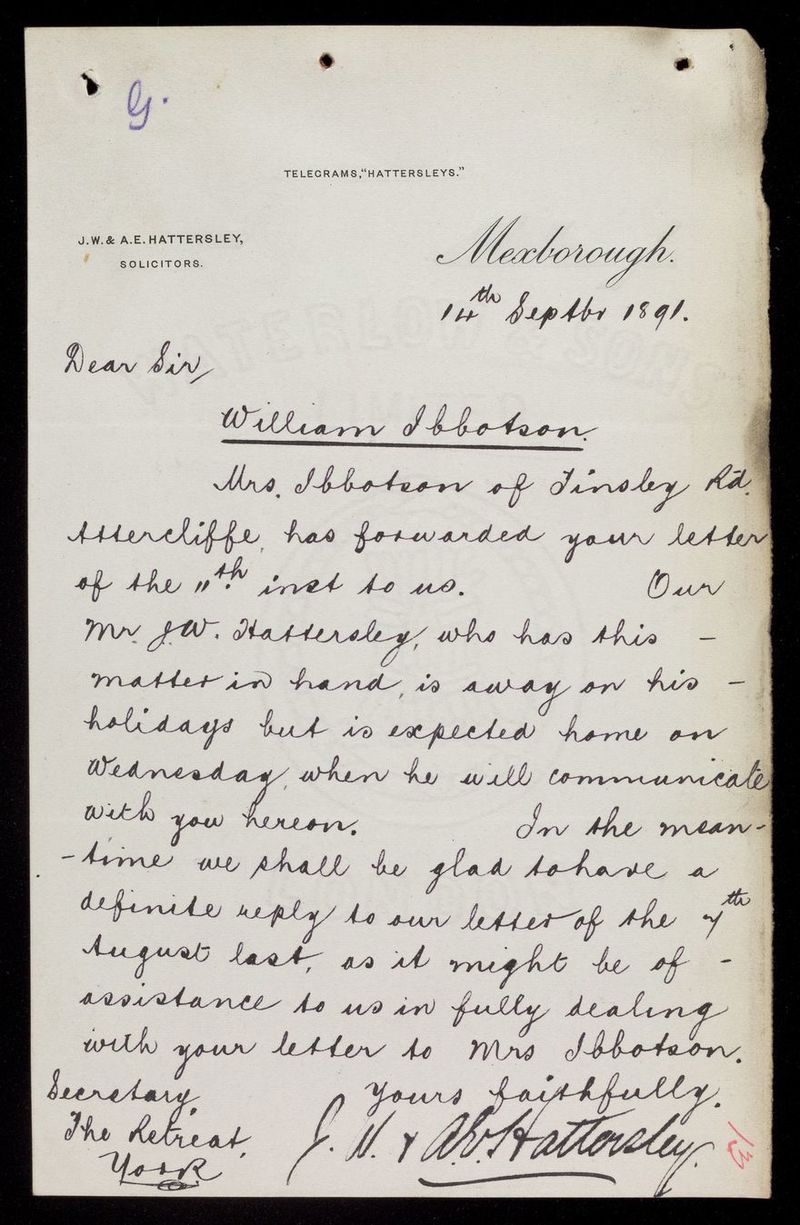 G.
TELEGRAMS, "HATTERSLEYS."
J.W. & A.E. HATTERSLEY,
SOLICITORS.
Mexborough.
14th Septbr 1891.
Dear Sir,
William Ibbotson.
Mrs. Ibbotson of Tinsley Rd.
Attercliffe, has forwarded your letter
of the 11th. inst to us. Our
Mr. J.W. Hattersley, who has this -
matter in hand, is away on his -
holidays but is expected home on
Wednesday, when he will communicate
with you hereon. In the mean-
-time we shall be glad to have a
definite reply to our letter of the 7th
August last, as it might be of -
assistance to us in fully dealing
with your letter to Mrs Ibbotson.
Yours faithfully.
J. W. & A.E. Hattersley.
Secretary,
The Retreat,
York
13